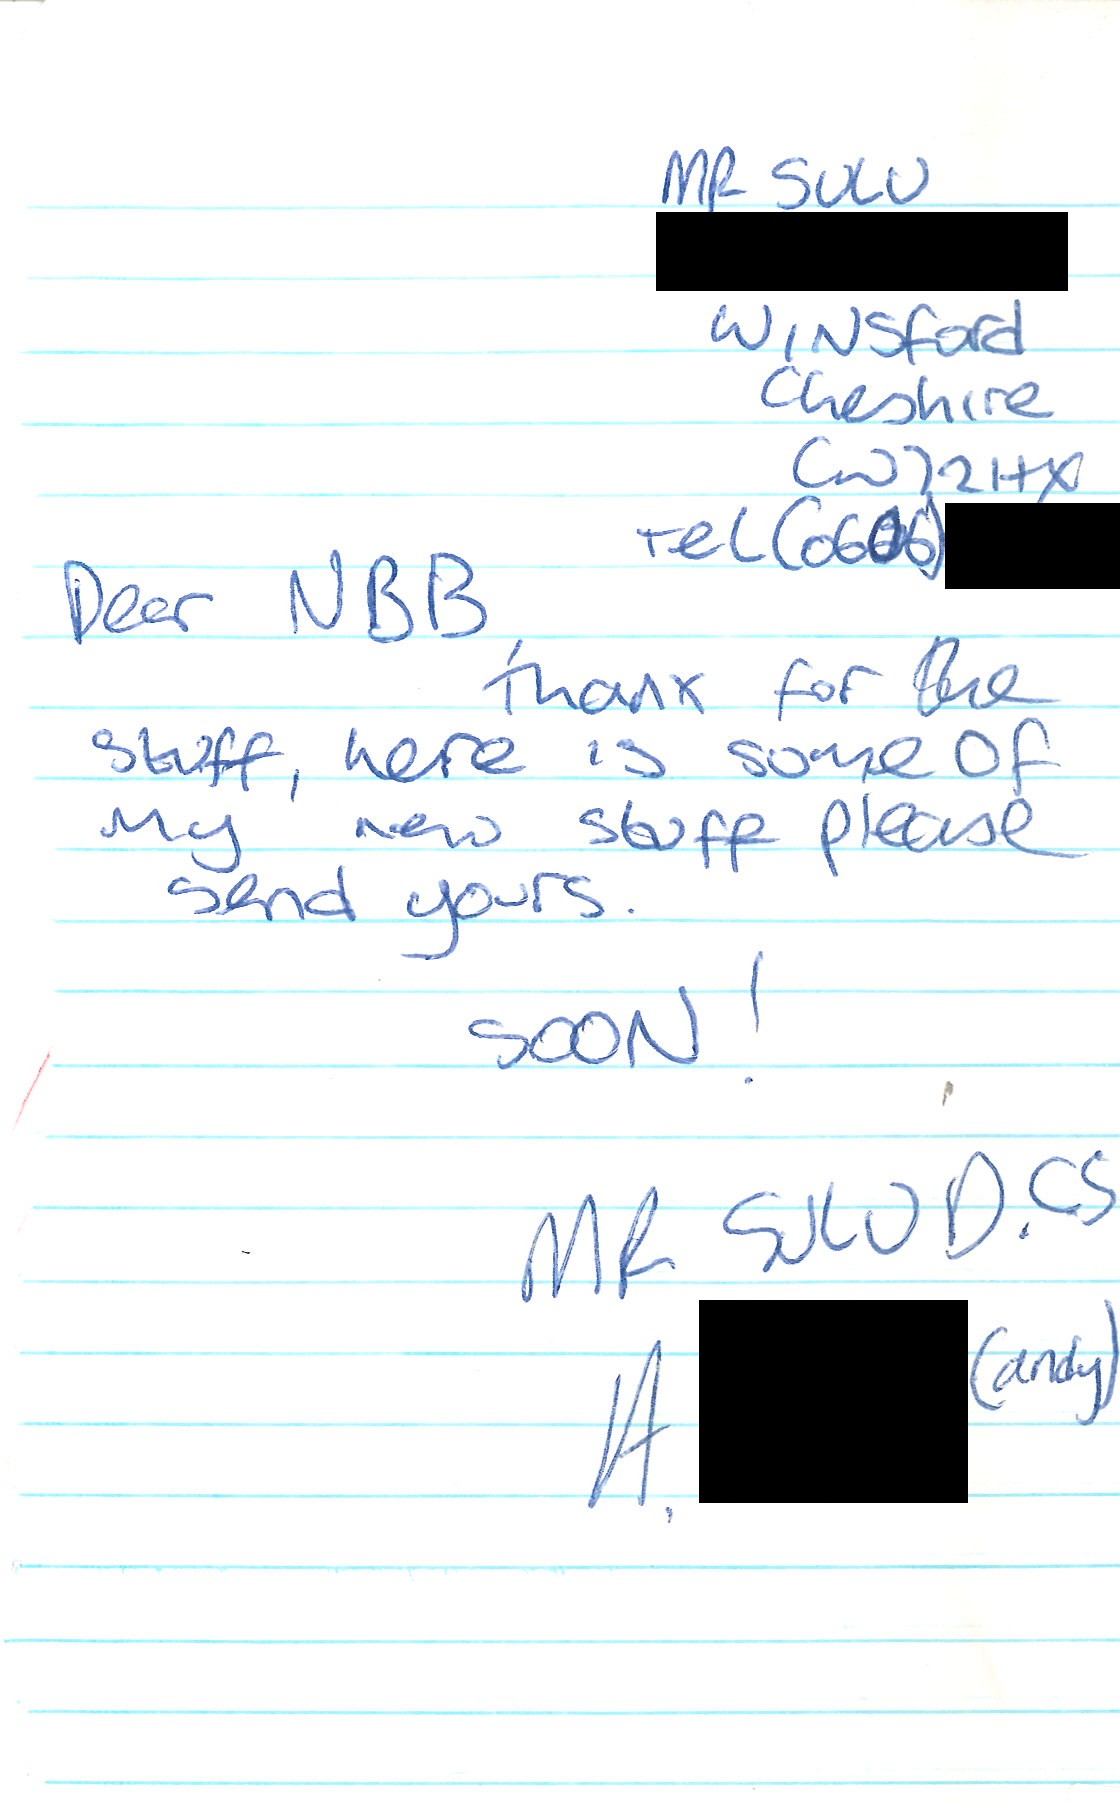 MR SULU
WINSford
Cheshire
CW72HX
Tel (0606)
Dear NBB
thank for the
stuff, here is some of
my new stuff please
send yours.
SOON!
MR SULU D.CS
A. (andy)